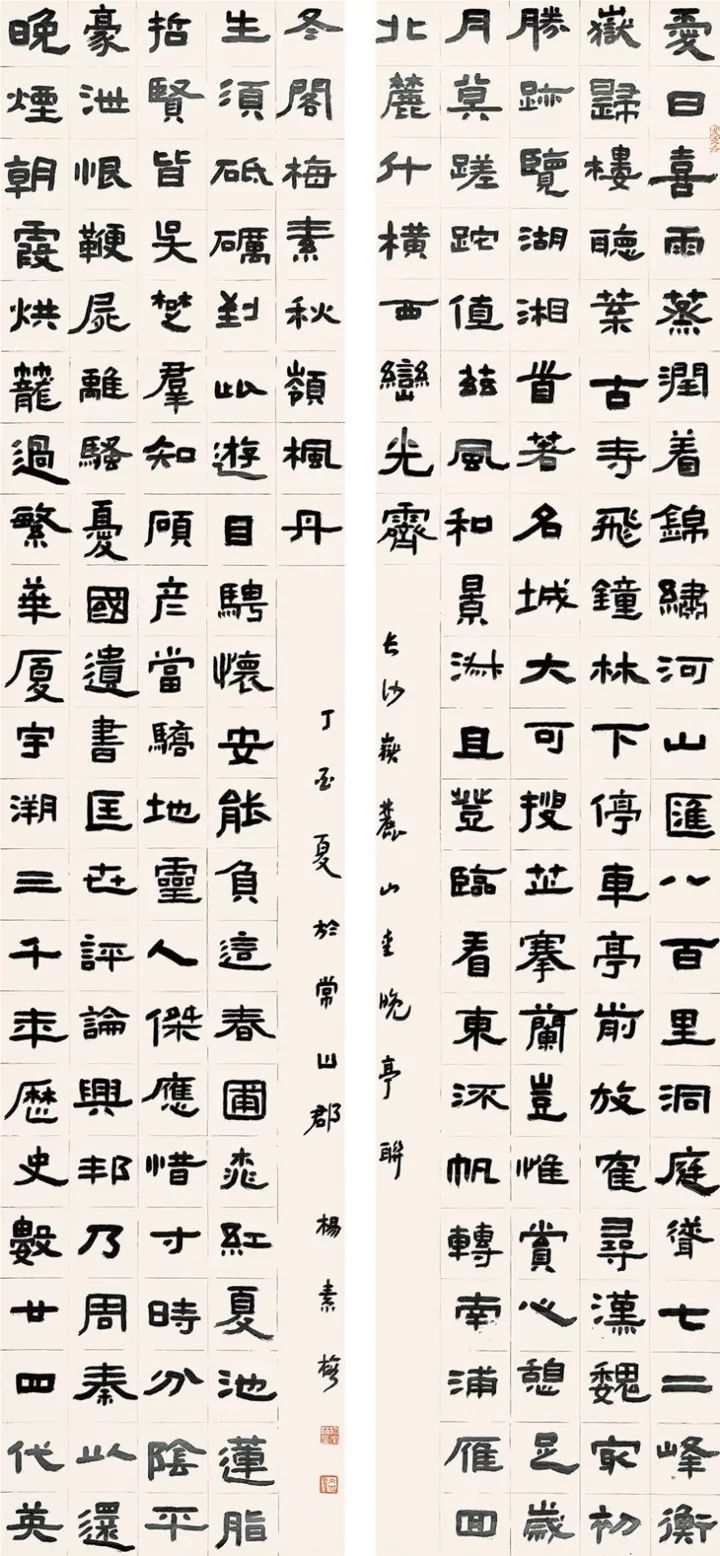 愛日喜雨蒸潤着錦繡河山匯八百里洞庭聳七二峰衡
嶽歸樓聽葉古寺飛鐘林下停車亭前放隺尋漢魏冣初
勝跡覽湖湘首著名城大可搜芷搴蘭豈惟賞心憩足歲
月莫蹉跎值茲風和景淑且登臨看東流帆轉南浦雁回
北麓斗橫西巒光霽
长沙嶽麓山愛晚亭聯
晚煙朝霞烘籠過繁華廈宇溯三千年歷史數廿四代英
豪泄恨鞭屍離騷憂國遺書匡世評論興邦乃周秦以還
哲賢皆吳楚羣知碩彥當驕地靈人傑應惜寸時分陰平
生須砥礪對此遊目騁懷安能負這春圃桃紅夏池蓮脂
冬閣梅素秋嶺楓丹
丁酉夏於常山郡 楊素